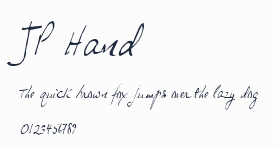 JP Hand
The quick brown fox jumps over the lazy dog
0123456789